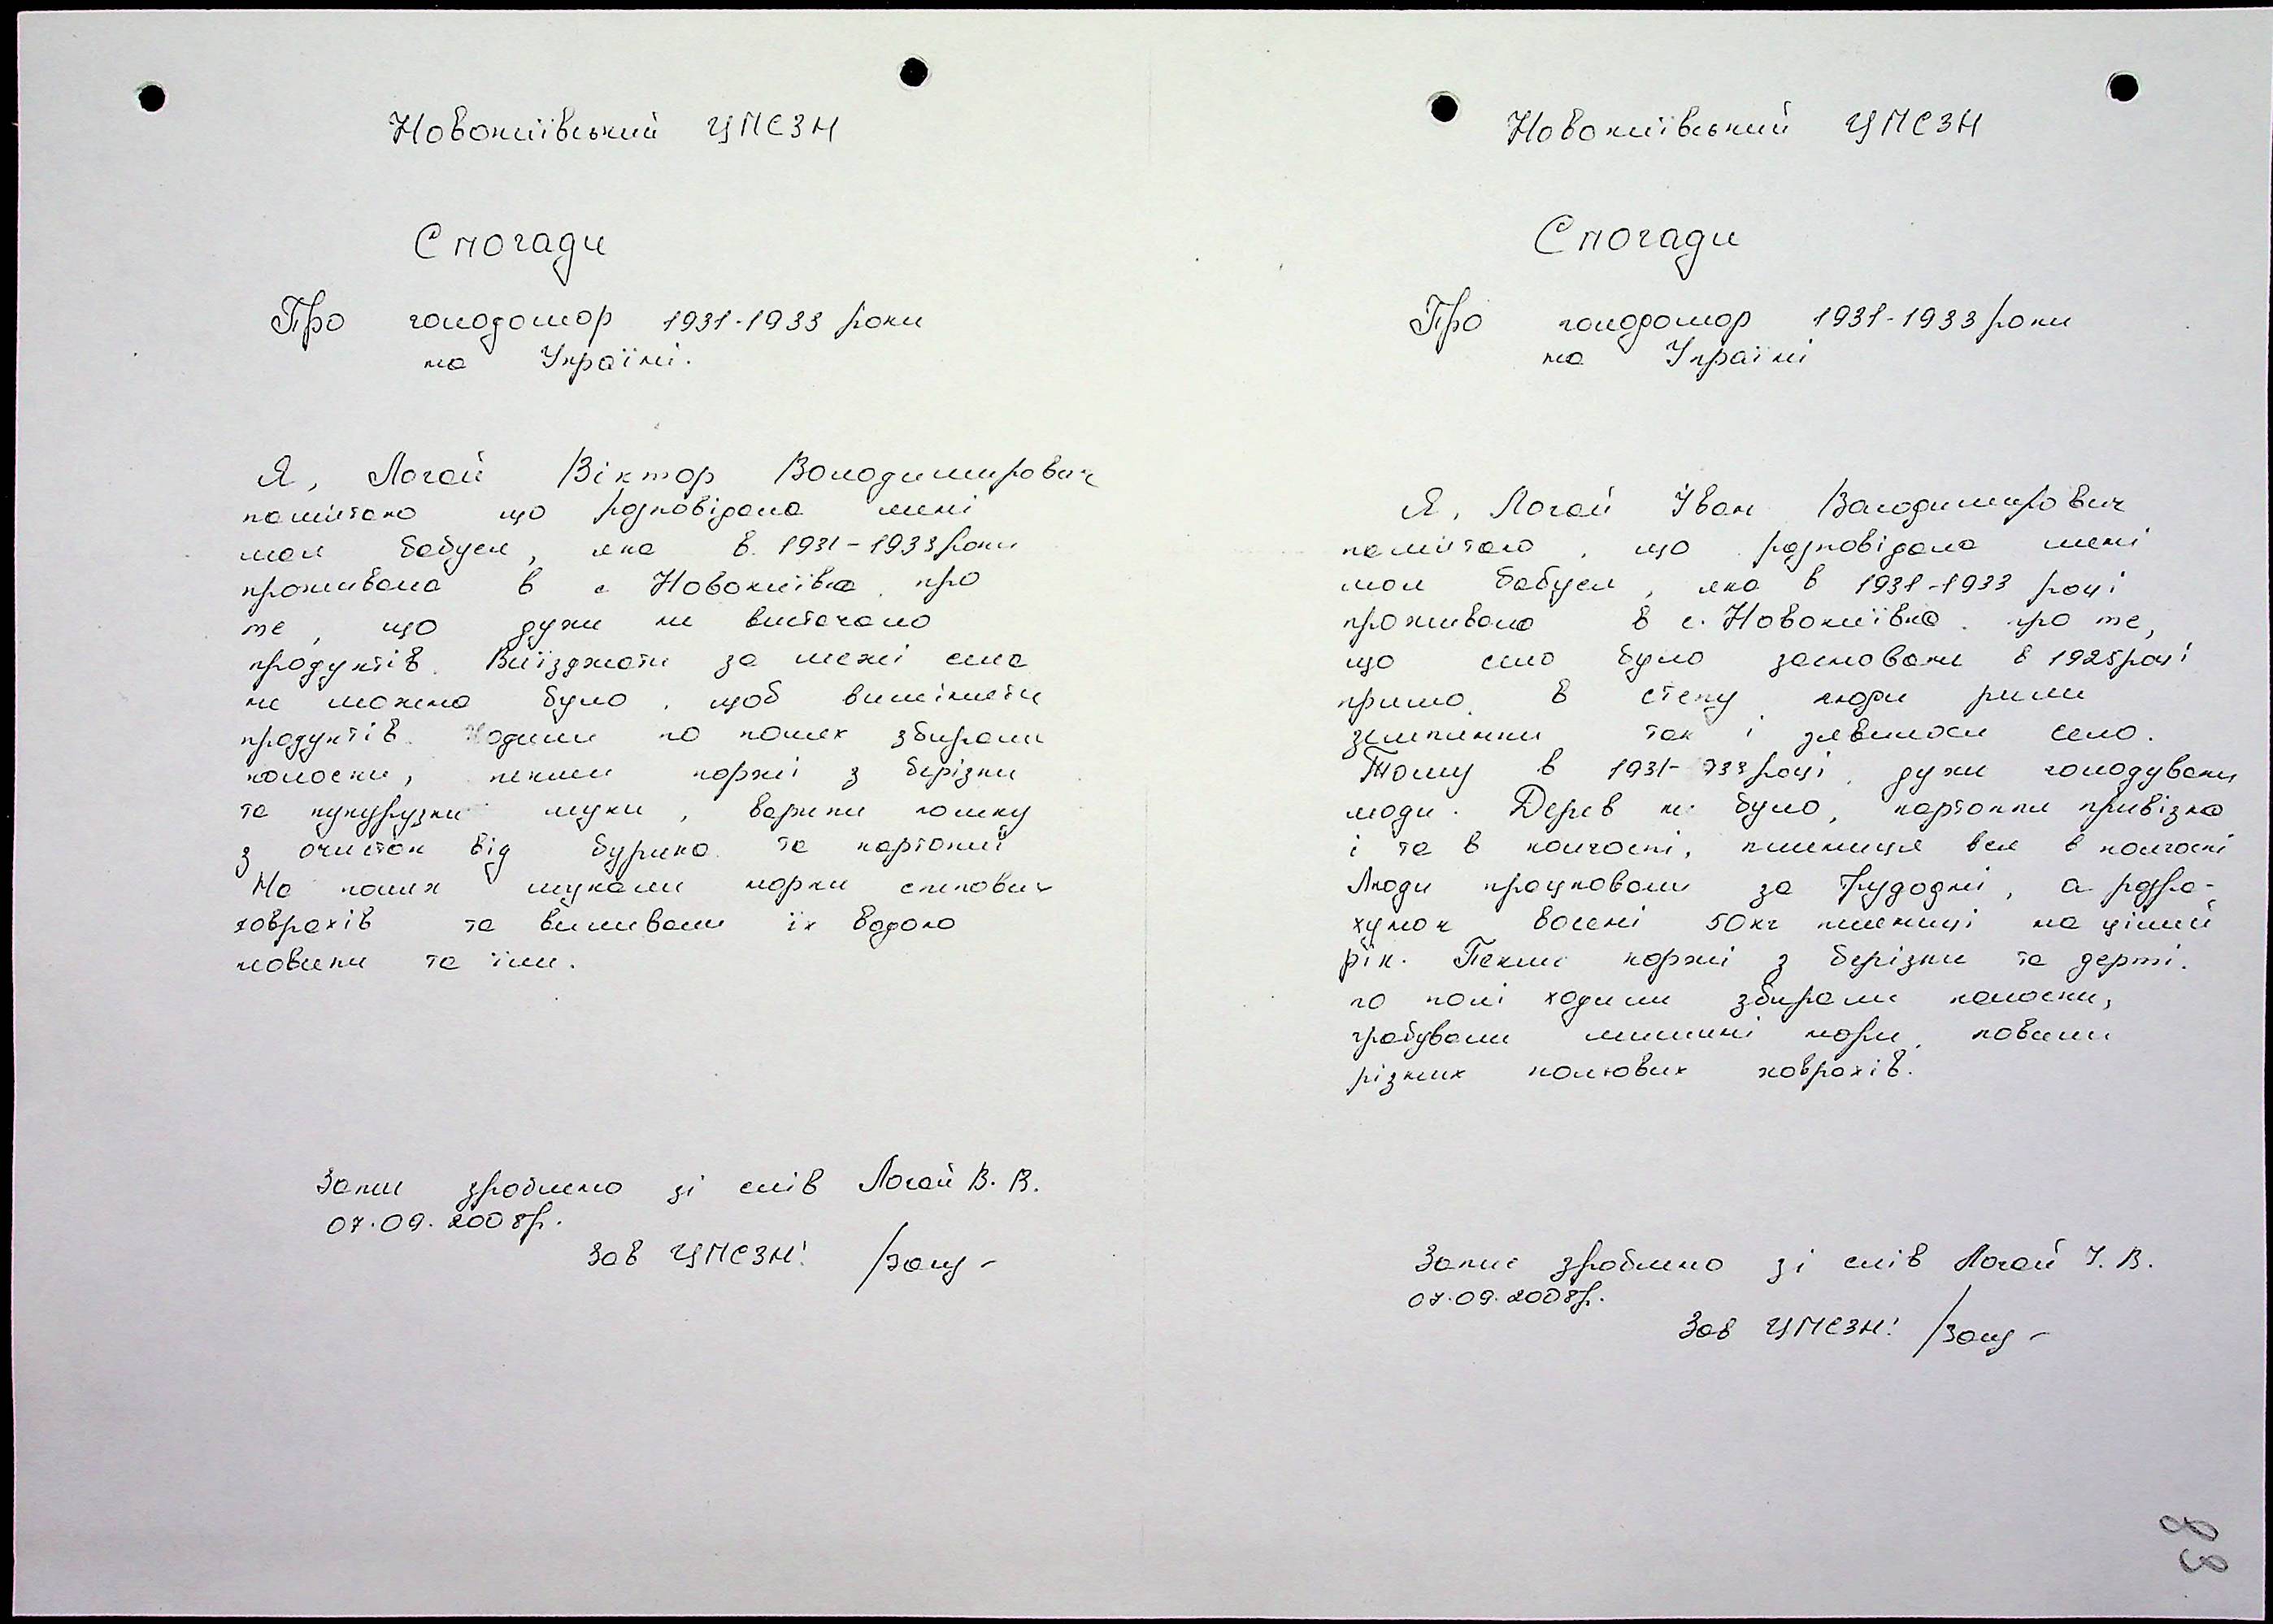 Новокиївський ЦПСЗН
Спогади
Про голодомор 1931-1933 роки
на Україні.
Я, Логай Віктор Володимирович
памятаю що розповідала мені
моя бабуся, яка в 1931-1933 роки
проживала в с Новокиївка про
те, що дуже не вистачало
продуктів. Виїзджати за межі села
не можна було, щоб виміняти
продуктів. Ходили по полях збирали
колоски, пекли коржі з берізки
та кукурузки муки, варили юшку
з очисток від буряка та картоплі
На полях шукали норки степових
ховрахів та виливали їх водою
ловили та їли.
Запис зроблено зі слів Логай В. В.
07.09.2008р.
Зав ЦПСЗН:
Новокиївський ЦПСЗН
Спогади
Про голодомор 1931-1933 роки
на Україні
Я, Логай Іван Володимирович
памятаю, що розповідала мені
моя бабуся, яка в 1931-1933 році
проживала в с. Новокиївка. про те,
що село було засноване в 1925 році
прямо в степу люди рили
землянки так і зявилося село.
Тому в 1931-933 році, дуже голодували
люди. Дерев не було, картопля привізна
і та в колгоспі, пшениця вся в колгоспі
Люди працювали за трудодні, а розра-
хунок восені 50 кг пшениці на цілий
рік. Пекли коржі з берізки та дерті.
по полі ходили збирали колоски,
грабували мишині нори, ловили
різних польових ховрахів.
Запис зроблено зі слів Логай І. В.
07.09.2008р.
Зав ЦПСЗН:
88